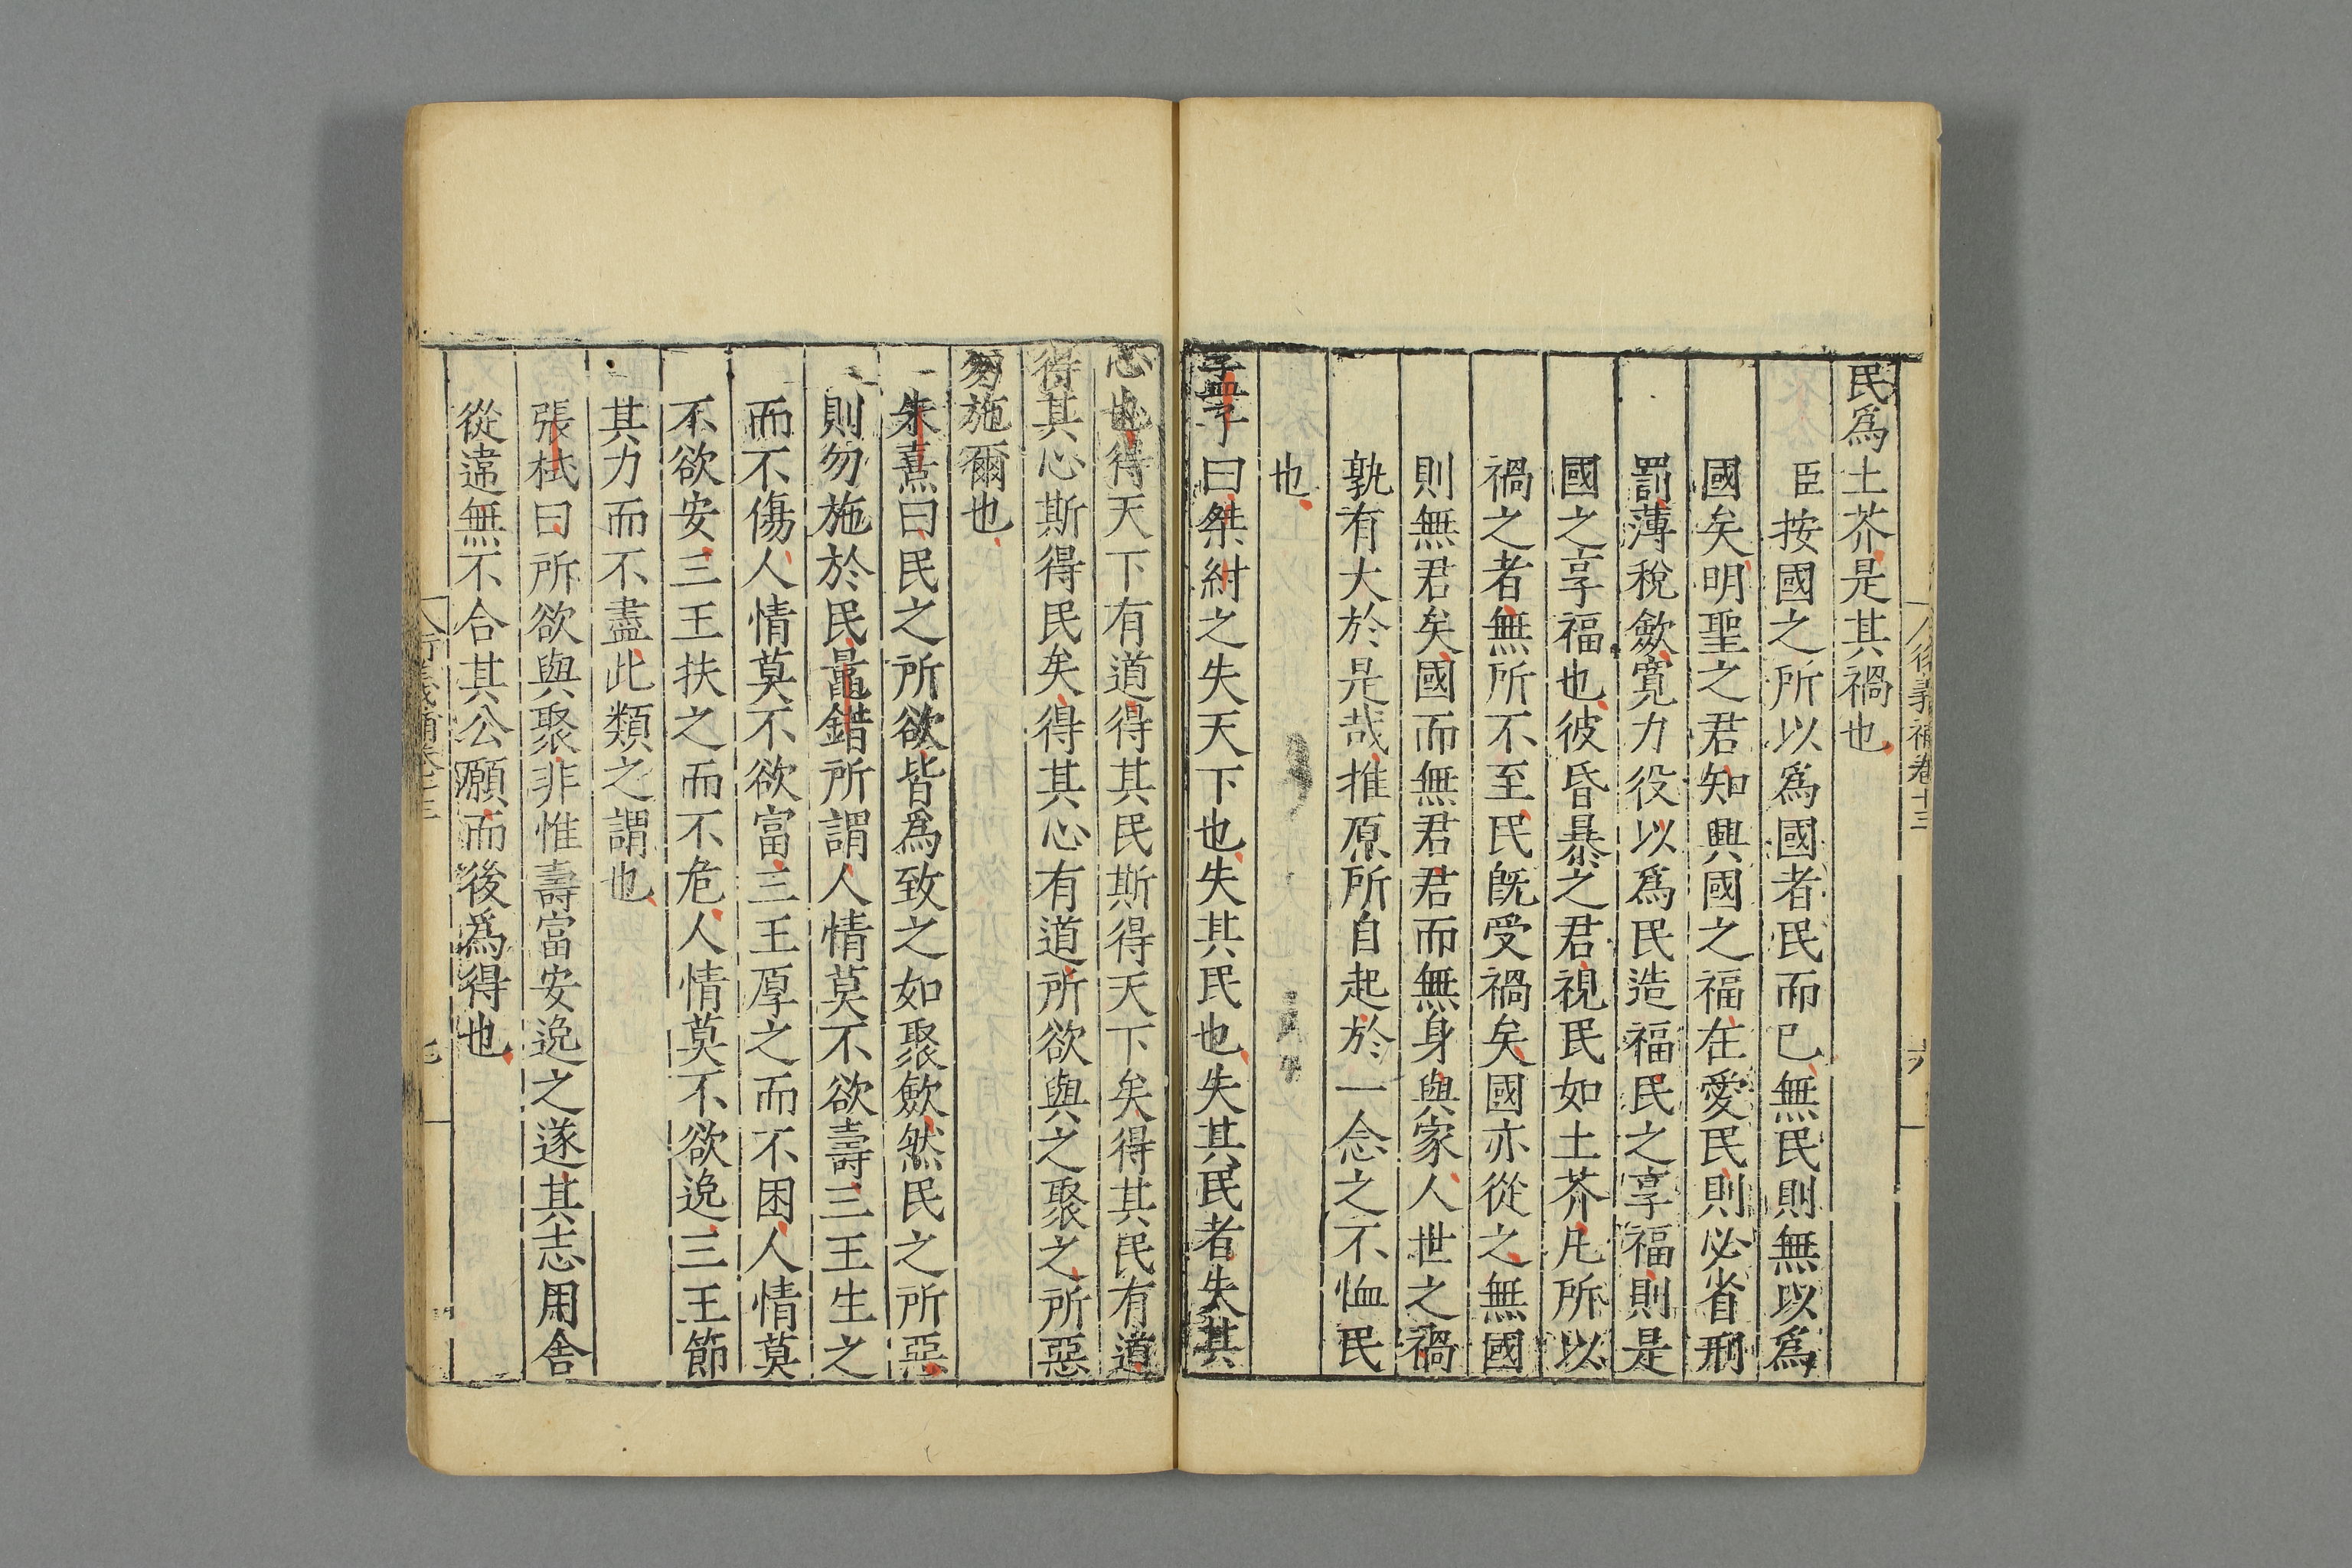 義補卷十三
六
民爲土芥是其禍也
臣按國之所以爲國者民而已無民則無以爲
國矣明聖之君知興國之福在愛民則必省刑
罰薄稅斂寬力役以爲民造福民之享福則是
國之享福也彼昏暴之君視民如土芥凡所以
禍之者無所不至民旣受禍矣國亦從之無國
則無君矣國而無君君而無身與家人世之禍
孰有大於是哉推原所自起於一念之不恤民
也
孟子曰桀紂之失天下也失其民也失其民者失其
心也得天下有道得其民斯得天下矣得其民有道
得其心斯得民矣得其心有道所欲與之聚之所惡
勿施爾也
朱熹曰民之所欲皆爲致之如聚斂然民之所惡
則勿施於民鼂錯所謂人情莫不欲壽三王生之
而不傷人情莫不欲富三王厚之而不困人情莫
不欲安三王扶之而不危人情莫不欲逸三王節
其力而不盡此類之謂也
張栻曰所欲與聚非惟壽富安逸之遂其志用舍
從違無不合其公願而後爲得也